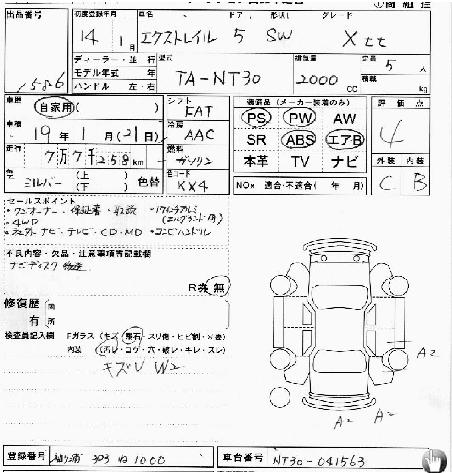 出品番号 初度登録年月 車名 ドア 形状 グレード
14年 1月 エクストレイル 5 SW Xtt
1586
ディーラー・並行 型式 排気量 定員 5人
モデル年式 年 TA-NT30 2000 積載
ハンドル 左・右 CC kg
車歴 自家用 ( ) シフト FAT 適選品 (メーカー装着のみ) 評価点
車検 19年 1月 (21日) 冷房 AAC PS PW AW 4
走行 7万7千258km 燃料 ガソリン SR ABS エアB 外装 内装
色 シルバー (上) (下) 色替 色コード KX4 本革 TV ナビ C B
NOx 適合・不適合 ( 年 月)
セールスポイント
・ワンオーナー ・保証書・取説
・4WD
・社外ナビ・テレビ・CD・MD
不良内容・欠品・注意事項等記載欄
ナビディスク
R券 無
修復歴 有 箇所
検査員記入欄 Fガラス (キズ・飛石・スリ傷・ヒビ割・×要)
内装 (汚レ・コゲ・穴・破レ・キレ・スレ)
キズU W2
A2
A2 A2
登録番号 303 1000 車台番号 NT30-041563